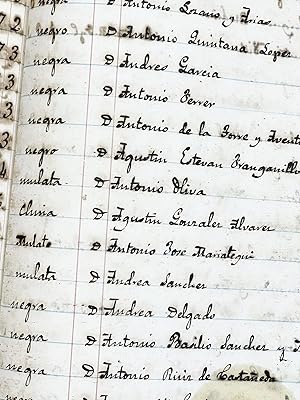 negra D Antonio Lozano y Arias
72 negro D Antonio Quintana Lopez
73 negra D Andres Garcia
3 negra D Antonio Ferrer
negra D Antonio de la Torre y Aventu
3 negro D Agustin Estevan Franganillo
4 mulata D Antonio Oliva
china D Agustin Gonzalez Alvarez
Mulato D Antonio Jose Mariategui
mulata D Andrea Sanchez
negra D Andrea Delgado
negra D Antonio Basilio Sanchez y
negra D Antonio Ruiz de Castañeda